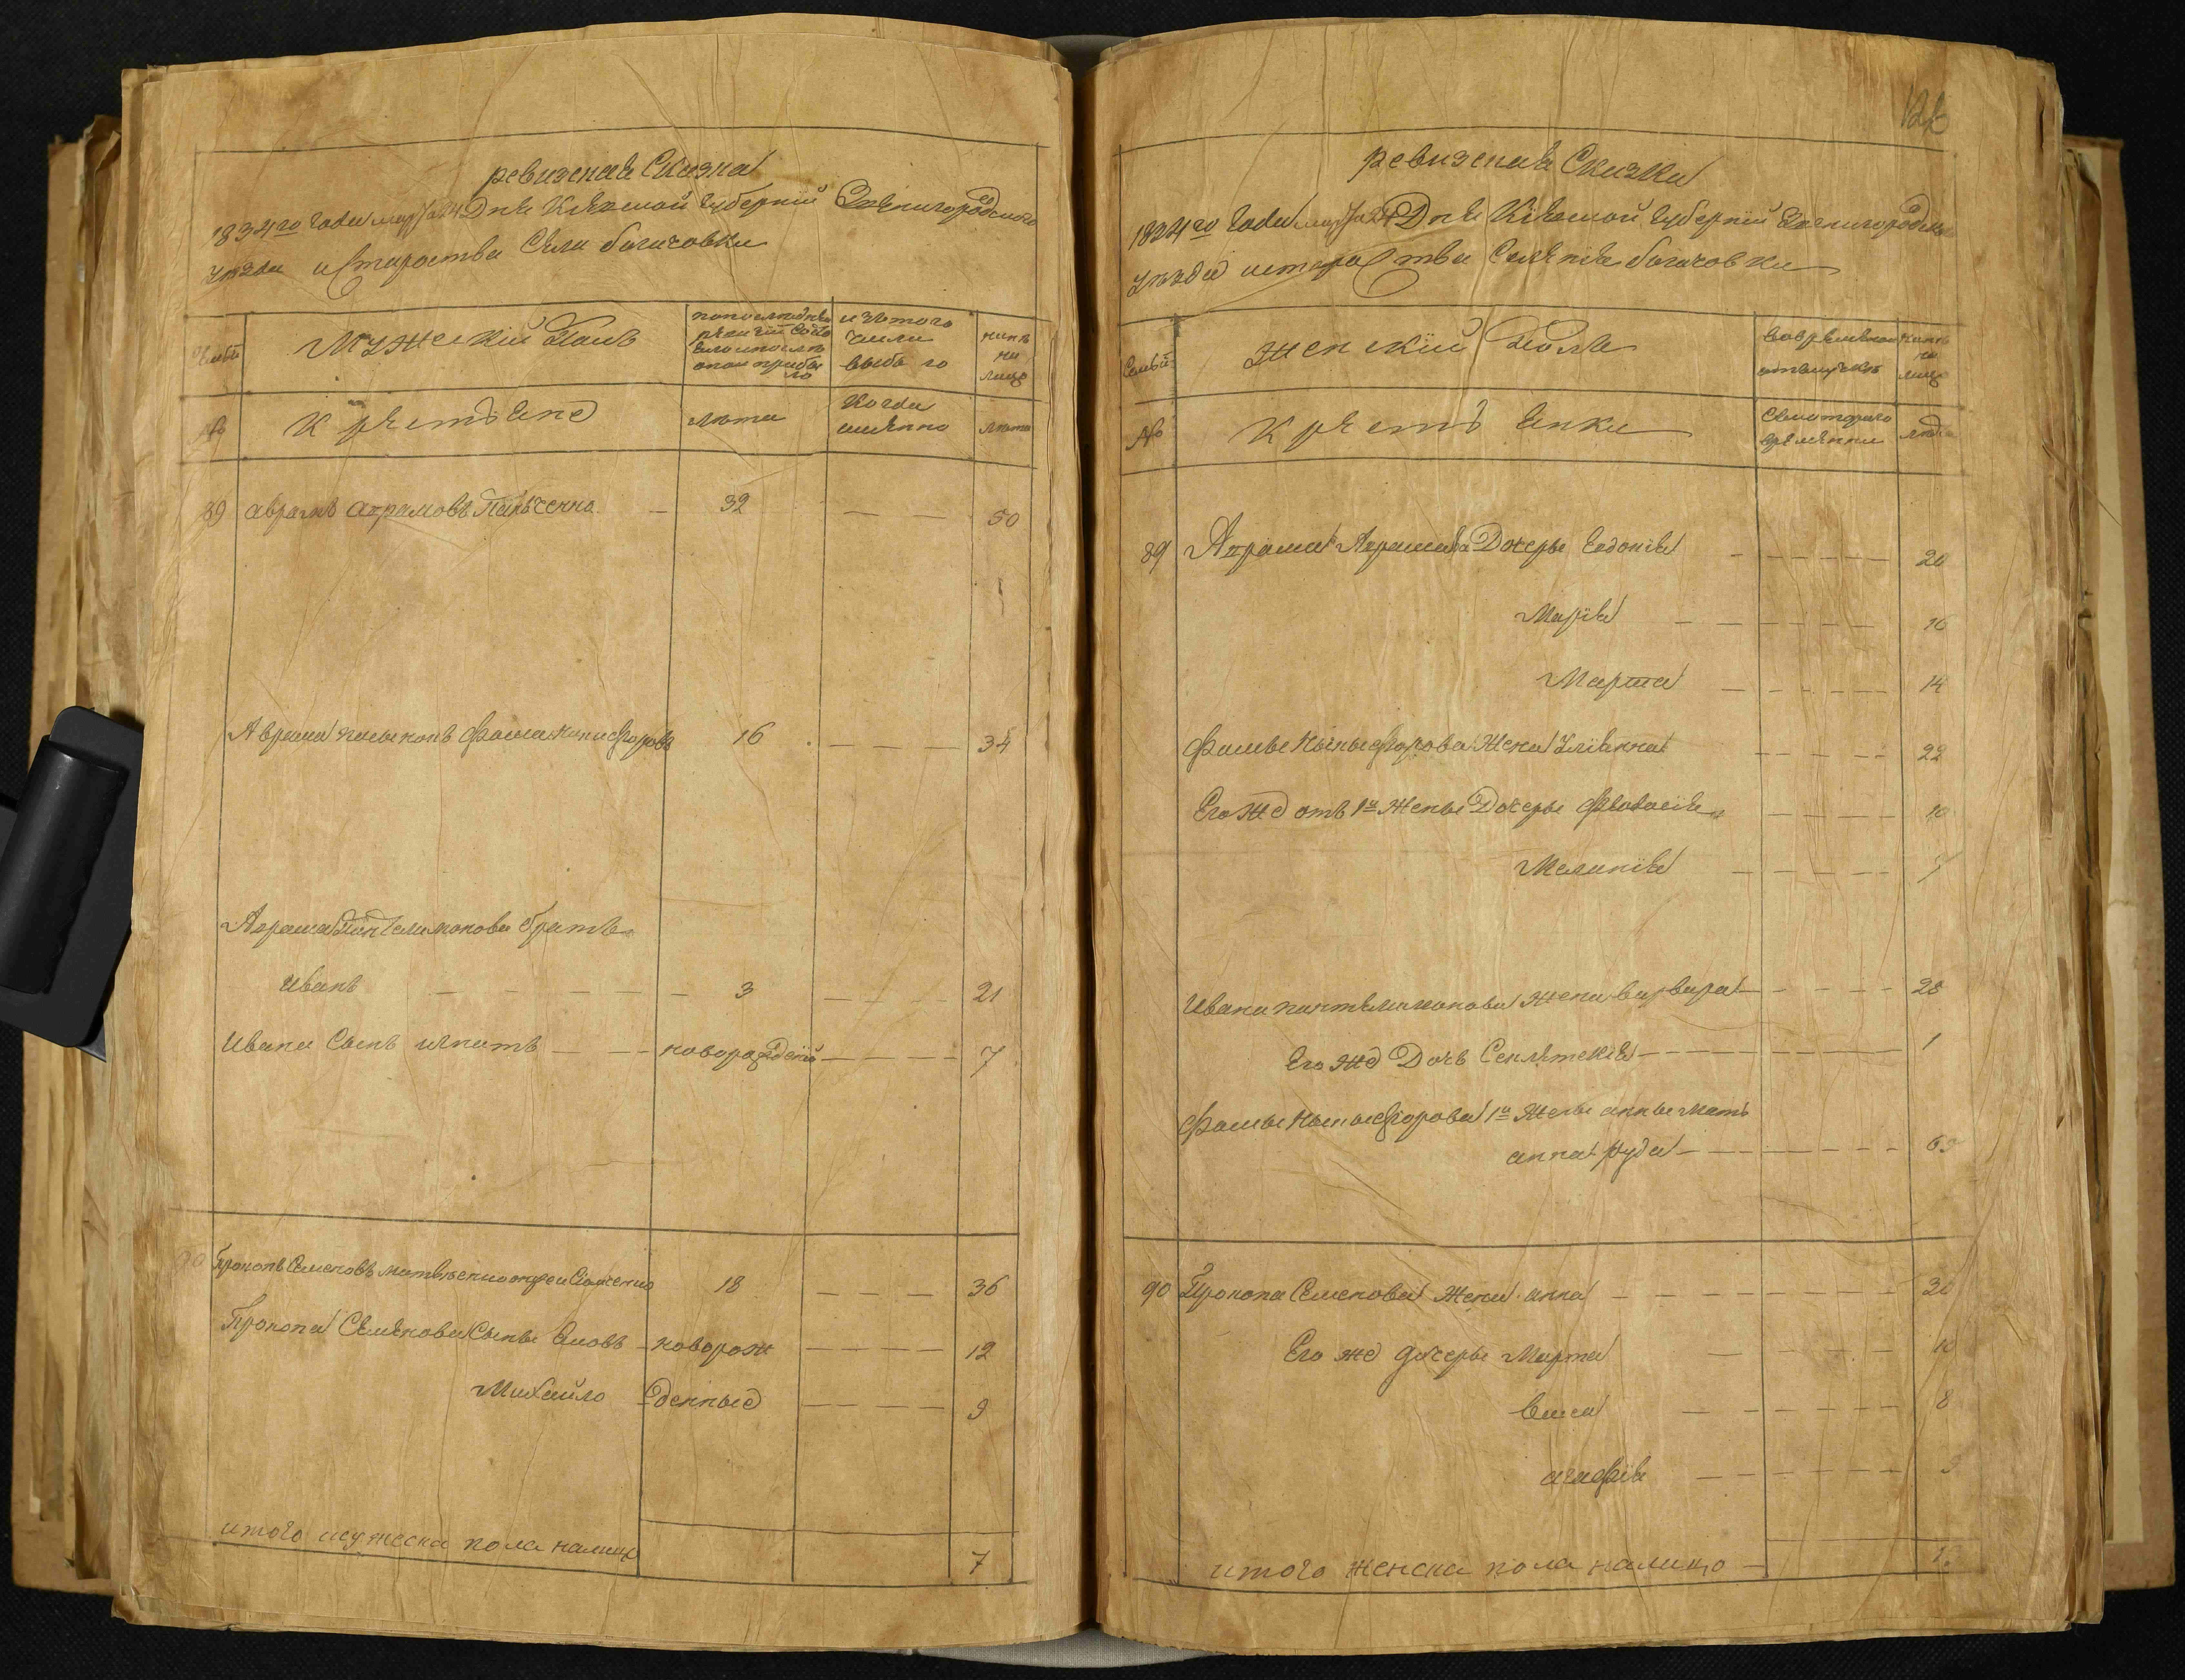 ревизская Сказка
1834го Года мар/а 24 Дня Кіевской Губерніи Звенигородского
уезда и Староства Села богачовки
Семьи
Мужескій Полъ
по последней
ревизіи состо
яло и после
оной прибы
ло
изътого
числа
выбы ло
нынѣ
на
лицо
№
Крестьяне
лѣта
Когда
именно
лѣта
89 аврамъ аврамовъ — 32 — — — 50
Аврама пасынокъ фома никифоровъ 16 — — — 34
Аврама Пантелимонова братъ
Иванъ — — — — — 3 — — — 21
Ивана Сынъ игнатъ — — новорожденій — — — 7
90 Прокопъ Семеновъ 18 — — — 36
Прокопа Семенова Сыны Яковъ — новорож — — — — 12
Михайло денные — — — — 9
итого мужеска пола налицо 7
126
ревизская Сказка
1834го Года мар/а 24 Дня Кіевской Губерніи Звенигородска
уезда и староства Селенія богачовки
Семьи
Женскій Полъ
вовременной
отлучкѣ
нынѣ
на
лицо
№
Крестьянки
Скотораго
времянни
лѣта
89 Аврама Аврамова Дочеры Евдокія — — — — 20
Марія — — — — 16
Марта — — — — 14
Фомы Ныкыфорова Жена Уліянна — — — — 22
Его же отъ 1й Жены Дочеры Феодосія — — — — 10
Меланія — — — —
Ивана пантелимонова жена варвара — — — — 28
Его же Дочъ Секлетекія — — — — 1
Фомы Ныкыфорова 1й Жены анны мать
анна руда — — — —
90 Прокопа Семенова Жена анна — — — — 30
Его же дочеры Марта — — — — 10
— — — — 8
агафія — — — —
итого женска пола налицо —